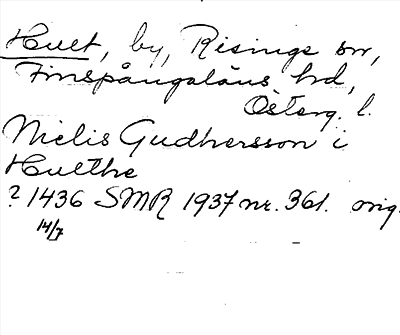 Huet, by, Risings sn,
Finspångaläns hd,
Österg. l.
Nielis Gudhersson i
Huethe
? 1436 SMR 1937 nr. 361. orig.
14/7